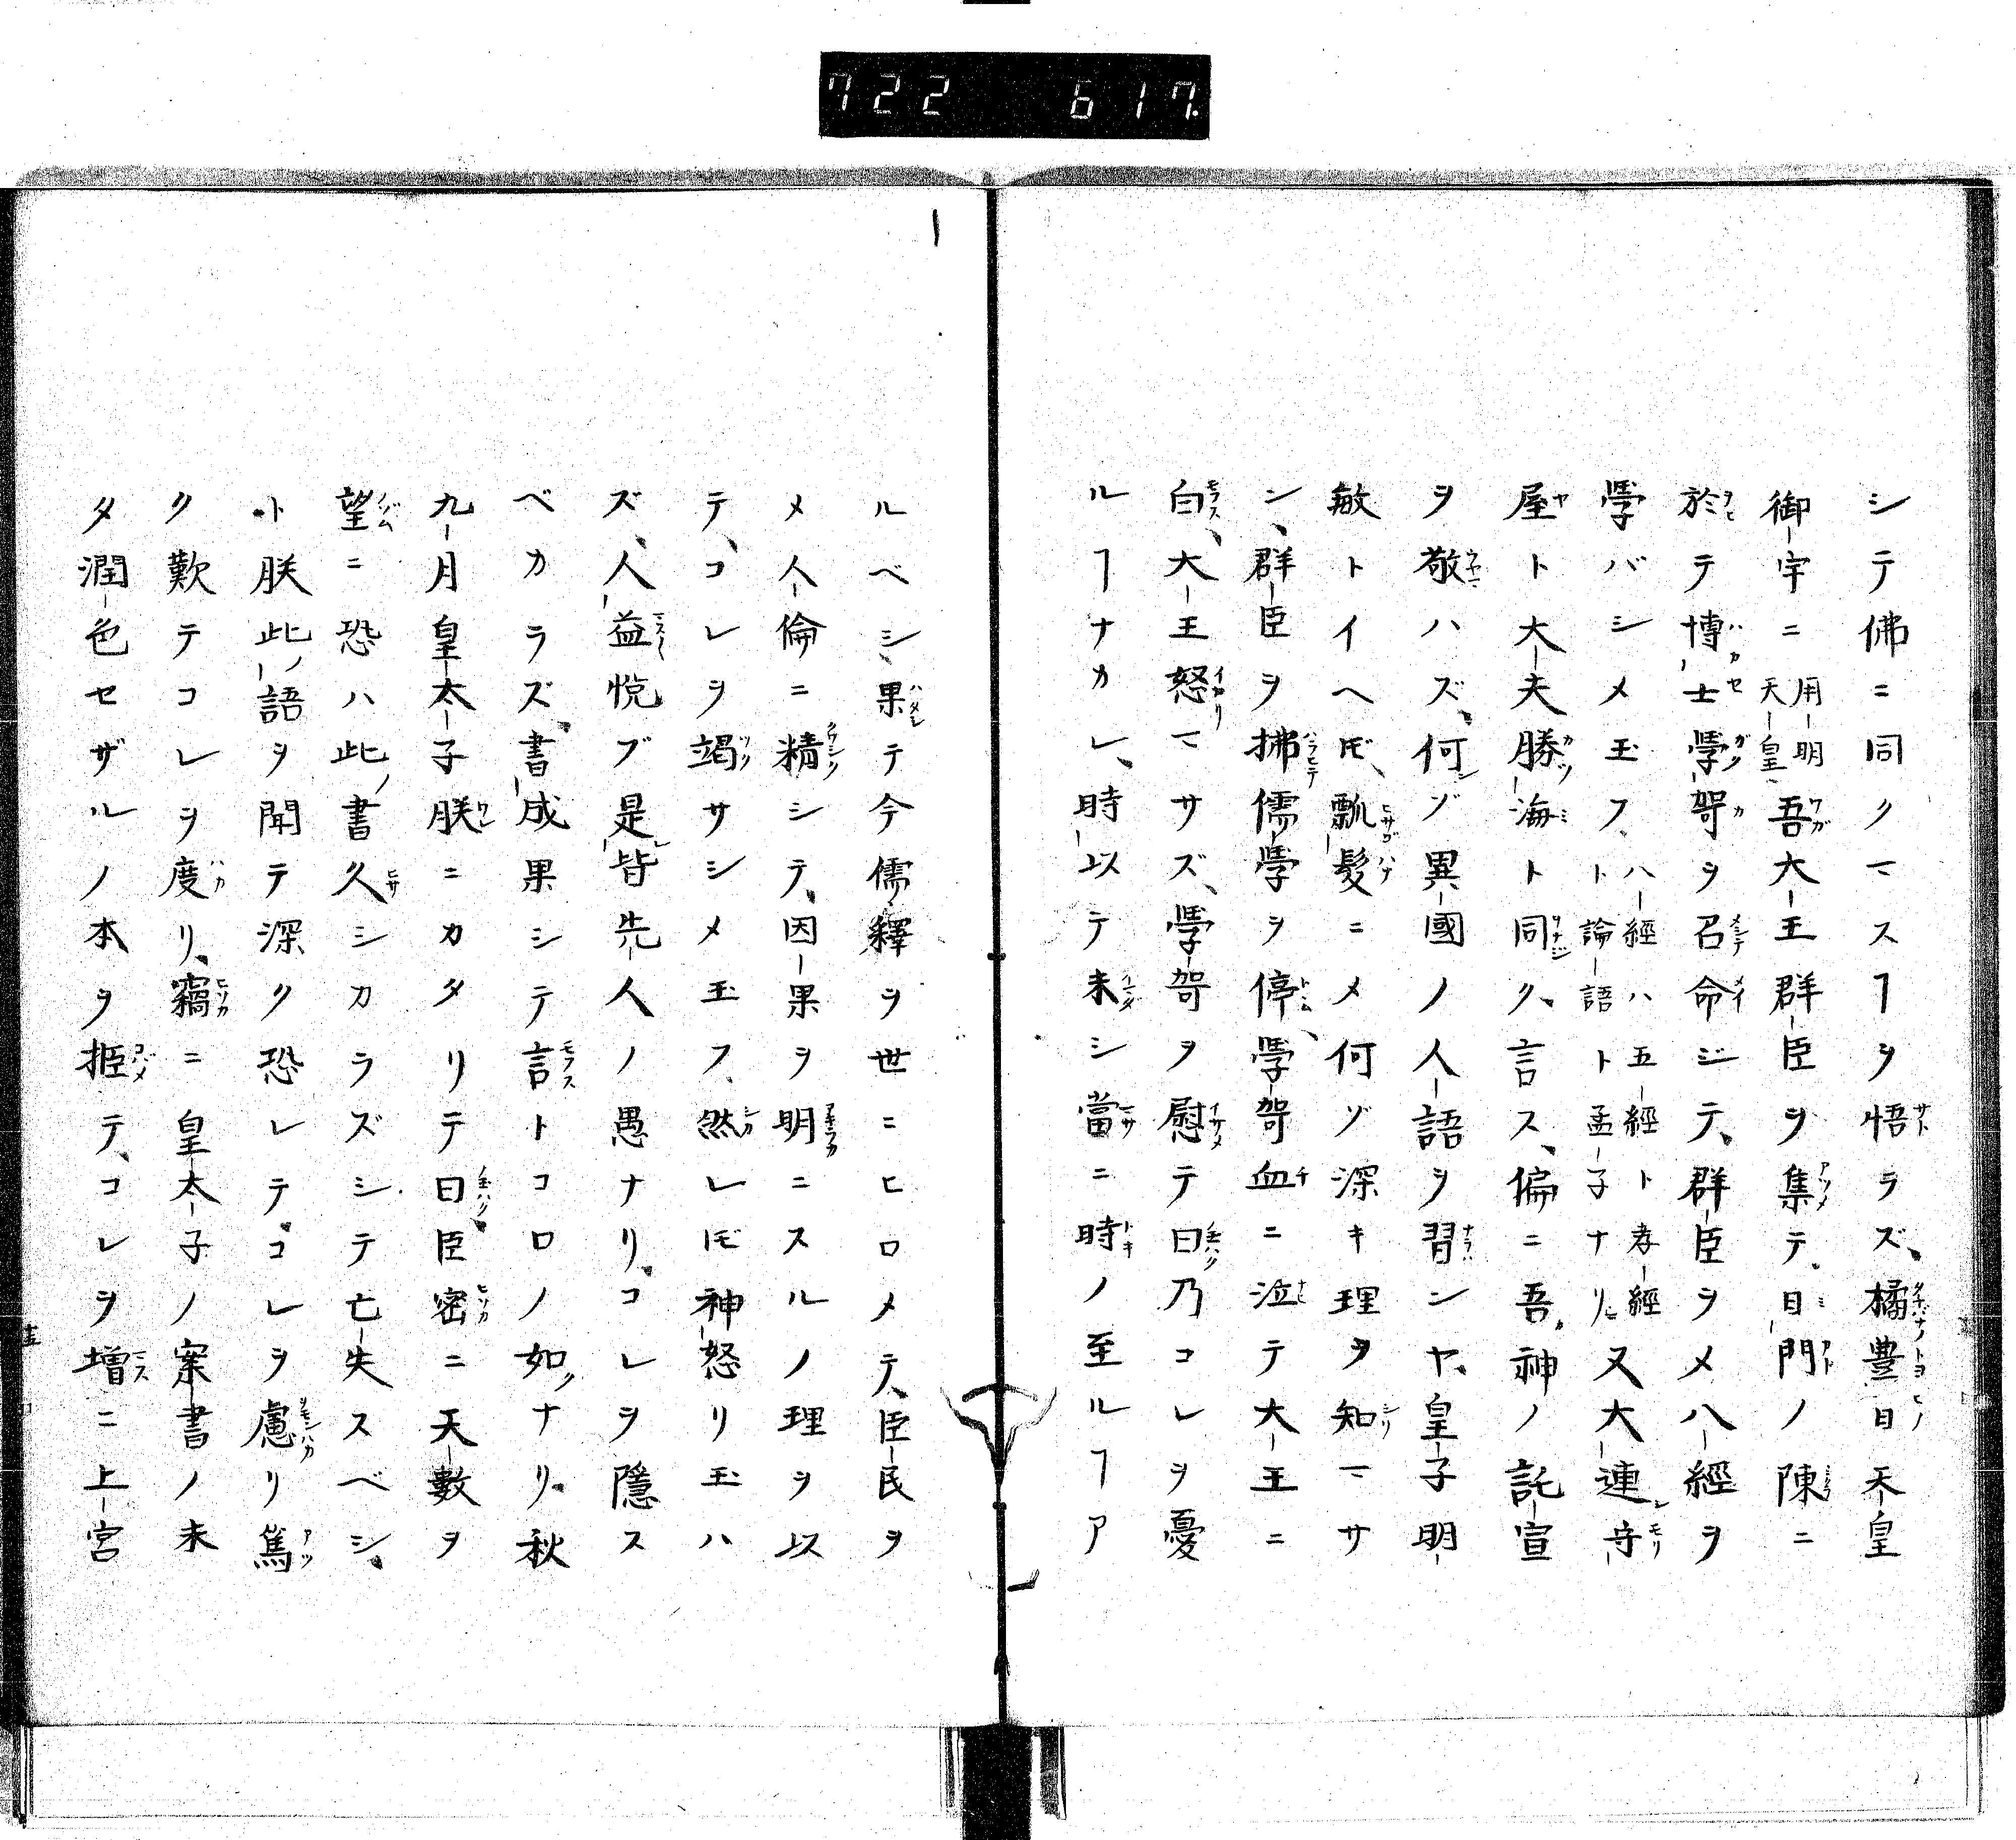 722 617.
シテ佛ニ同クマスヿヲ悟ラズ、橘豊日天皇
御宇ニ用明天皇、吾大王群臣ヲ集テ、目門ノ陳ニ
於テ博士學哿ヲ召命ジテ、群臣ヲメ八經ヲ
學バシメ玉フ、八經ハ五經ト孝經ト論語ト孟子ナリ、又大連守
屋ト大夫勝海ト同ク、言ス、偏ニ吾神ノ託宣
ヲ敬ハズ、何ゾ異國ノ人語ヲ習ンヤ、皇子明
敏トイヘ𪜈、瓢髮ニメ何ゾ深キ理ヲ知マサ
ン、群臣ヲ拂儒學ヲ停、學哿血ニ泣テ大王ニ
白、大王怒マサズ、學哿ヲ慰テ曰乃コレヲ憂
ルヿナカレ、時以テ未シ當ニ時ノ至ルヿア
ルベシ、果テ今儒釋ヲ世ニヒロメテ、臣民ヲ
メ人倫ニ精シテ、因果ヲ明ニスルノ理ヲ以
テ、コレヲ竭サシメ玉フ、然レ𪜈神怒リ玉ハ
ズ、人益悦ブ是皆先人ノ愚ナリ、コレヲ隱ス
ベカラズ、書成果シテ言トコロノ如ナリ、秋
九月皇太子朕ニカタリテ曰臣密ニ天數ヲ
望ニ恐ハ此書久シカラズシテ亡失スベシ、
ト朕此語ヲ聞テ深ク恐レテ、コレヲ慮リ篤
ク歎テコレヲ度リ、竊ニ皇太子ノ案書ノ未
タ潤色セザルノ本ヲ挋テ、コレヲ増ニ上宮